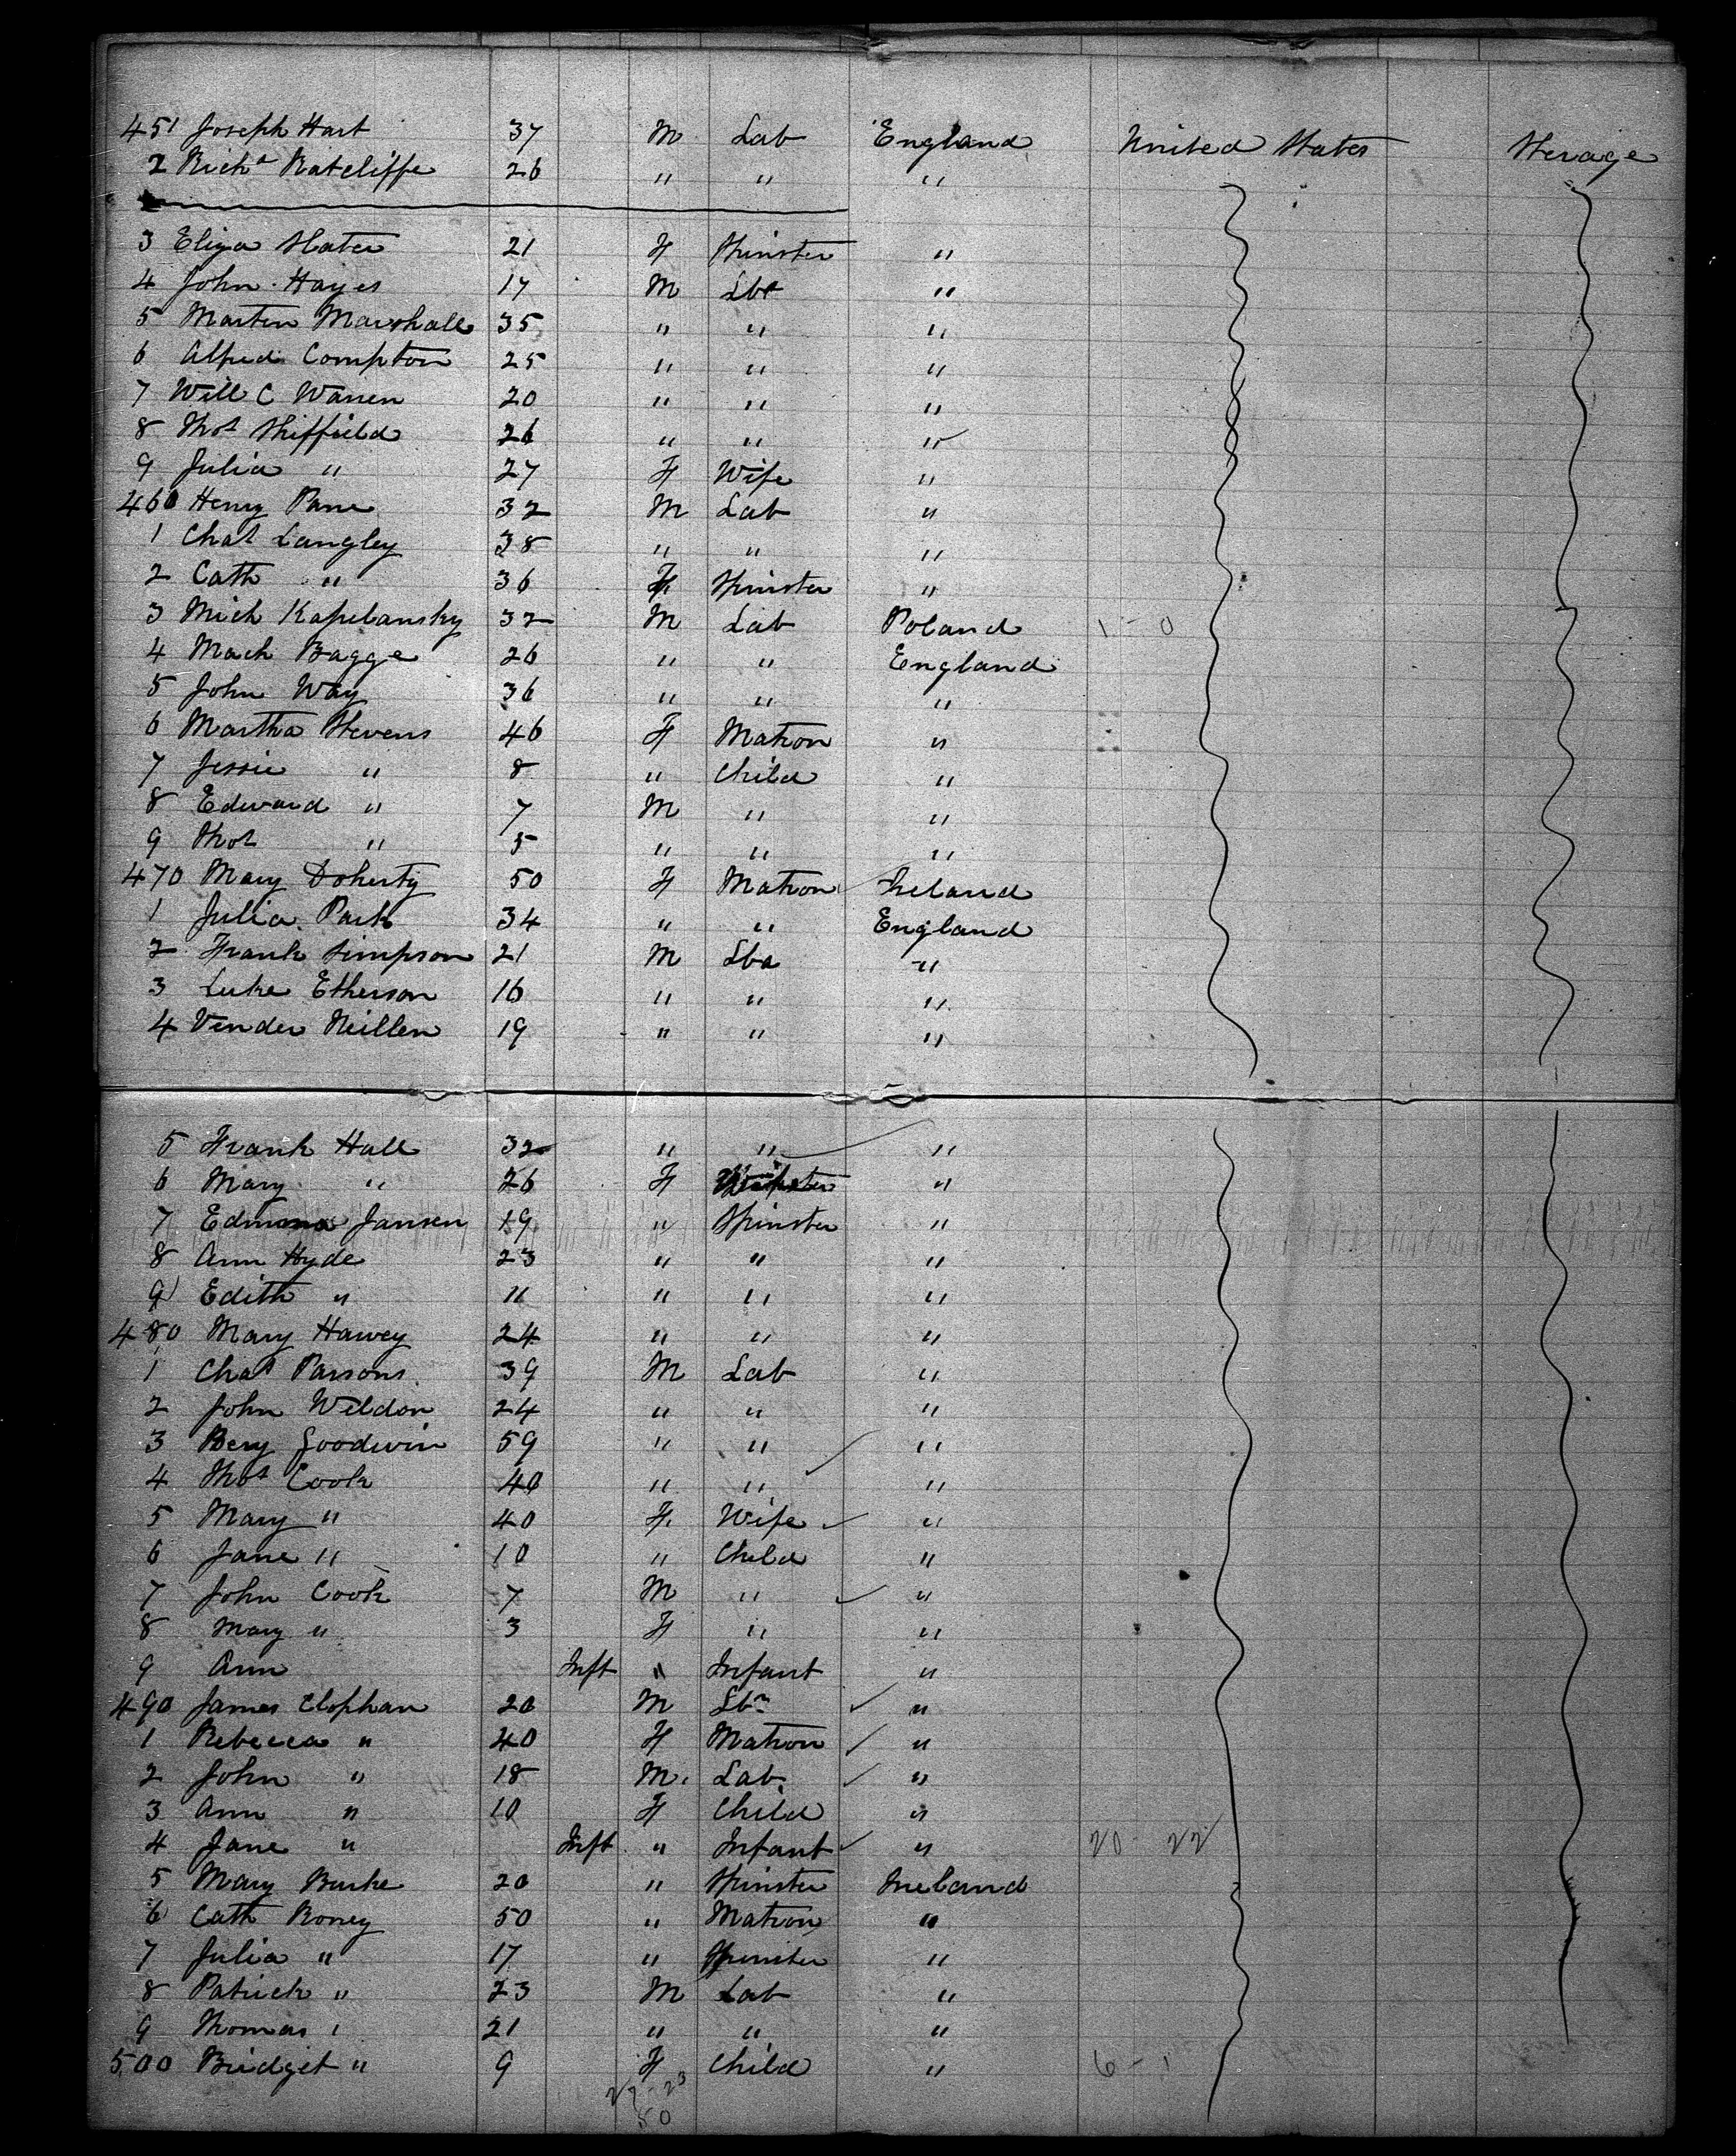 451 Joseph Hart 37 M Lab England United States Sterage
2 Richd Ratcliffe 26 " " "
3 Eliza Slater 21 F Spinster "
4 John Hayes 17 M Lbr "
5 Marten Marshall 35 " " "
6 Alfred Compton 25 " " "
7 Will C Warren 20 " " "
8 Thos Shiffield 26 " " "
9 Julia " 27 F Wife "
460 Henry Pane 32 M Lab "
1 Chas Langley 38 " " "
2 Cath " 36 F Spinster "
3 Mich Kapelansky 32 M Lab Poland 1 - 0
4 Mach Bagge 26 " " England
5 John Way 36 " " "
6 Martha Stevens 46 F Matron "
7 Jessie " 8 " Child "
8 Edward " 7 M " "
9 Thos " 5 " " "
470 Mary Doherty 50 F Matron Ireland
1 Julia Park 34 " " England
2 Frank Simpson 21 M Lba "
3 Luke Etherson 16 " " "
4 Vender Neillen 19 " " "
5 Frank Hall 32 " " "
6 Mary " 26 F "
7 Jansen 19 " Spinster "
8 Ann Hyde 23 " " "
9 Edith " 11 " " "
480 Mary Harvey 24 " " "
1 Chas Parsons 39 M Lab "
2 John Weldon 24 " " "
3 Benj Goodwin 59 " " "
4 Thos Cook 40 " " "
5 Mary " 40 F Wife "
6 Jane " 10 " Child "
7 John Cook 7 M " "
8 Mary " 3 F " "
9 Ann Inft " Infant "
490 James Clophan 20 M Lbr "
1 Rebecca " 40 F Matron "
2 John " 18 M. Lab. "
3 Ann " 10 F Child "
4 Jane " Inft " Infant " 20 - 22
5 Mary Burke 20 " Spinster Ireland
6 Cath Roney 50 " Matron "
7 Julia " 17 " Spinster "
8 Patrick " 23 M Lab "
9 Thomas " 21 " " "
500 Bridget " 9 F Child " 6 - 1
27 - 23
50